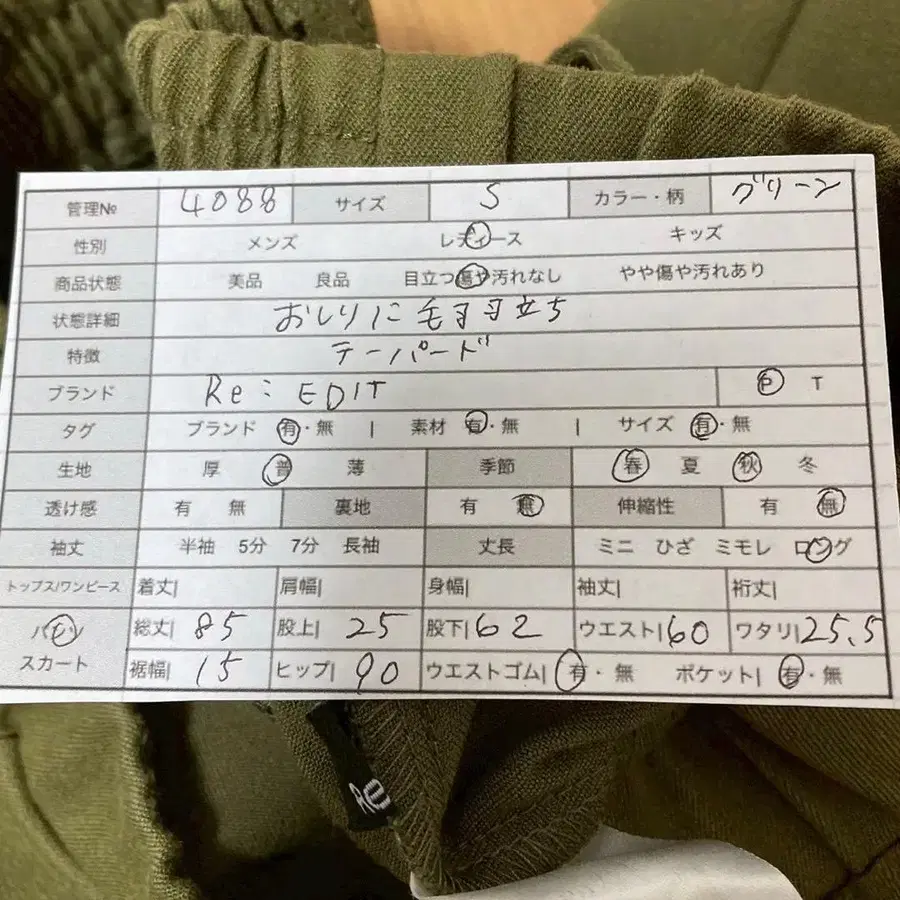 管理№ 4088 サイズ S カラー・柄 グリーン
性別 メンズ レディース キッズ
商品状態 美品 良品 目立つ傷や汚れなし やや傷や汚れあり
状態詳細 おしりに毛羽立ち
特徴 テーパード
ブランド Re:EDIT P T
タグ ブランド 有・無 | 素材 有・無 | サイズ 有・無
生地 厚 普 薄 季節 春 夏 秋 冬
透け感 有 無 裏地 有 無 伸縮性 有 無
袖丈 半袖 5分 7分 長袖 丈長 ミニ ひざ ミモレ ロング
トップス/ワンピース 着丈| 肩幅| 身幅| 袖丈| 裄丈|
パンツ 総丈| 85 股上| 25 股下| 62 ウエスト| 60 ワタリ| 25.5
スカート 裾幅| 15 ヒップ| 90 ウエストゴム| 有・無 ポケット| 有・無
Re